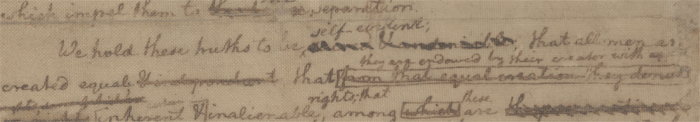 which impel them to the separation.
self-evident;
We hold these truths to be, that all men are
they are endowed by their creator with
created equal & independent, that from that equal creation they derive
rights; that
inherent & inalienable, among which these are